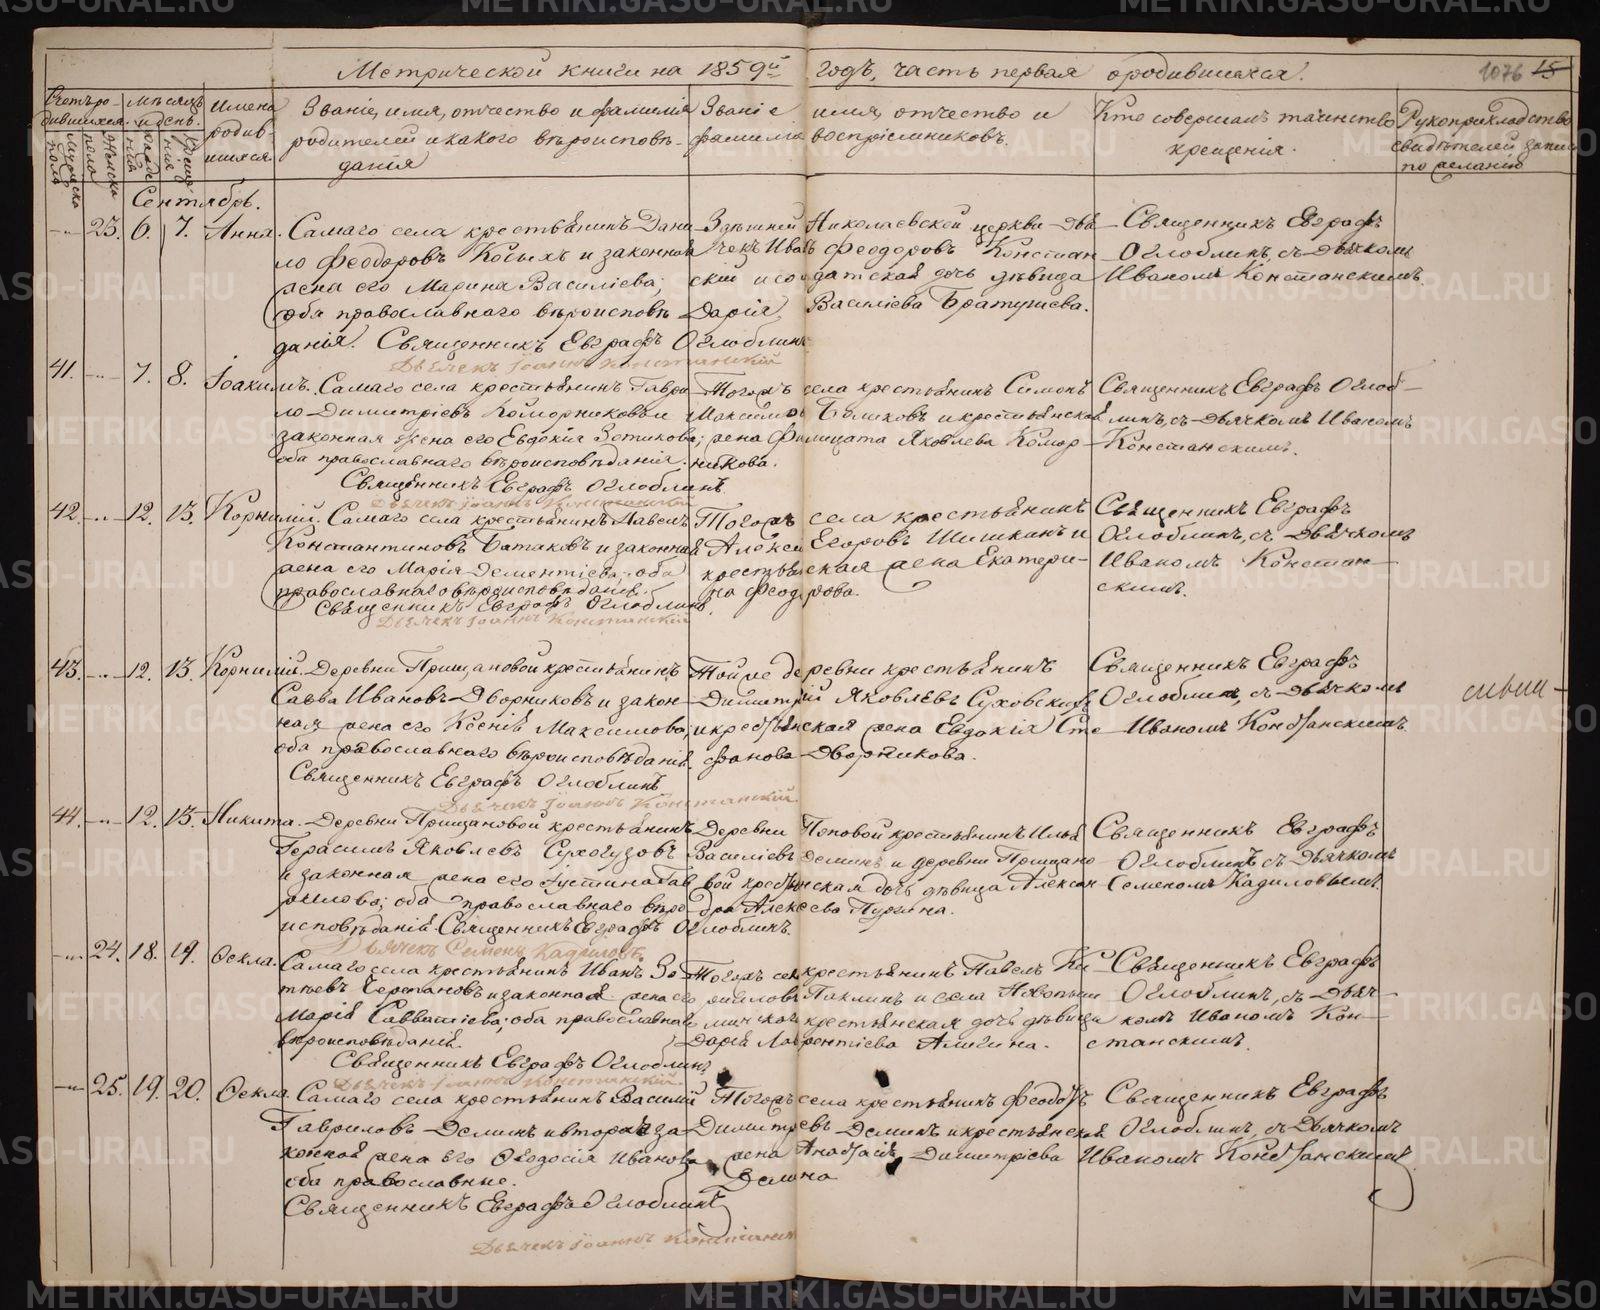 Метрической книги на 1859й годъ, часть первая о родившихся.
1076 15
Счетъ родившихся.
Мѣсяцъ и день.
Имена родившихся.
Званіе, имя, отчество и фамилія родителей и какого вѣроисповѣданія
Званіе имя, отчество и фамилія воспріемниковъ.
Кто совершалъ таинство крещенія.
Рукоприкладство свидѣтелей записи по желанію
Сентябрь.
23. 6. 7. Анна.
Самаго села крестьянинъ Дани
ло Феодоровъ Косыхъ и законная
жена его Марина Василіева;
оба православнаго вѣроисповѣ
данія. Священникъ Евграфъ Оглоблинъ
Дьячекъ Іоаннъ Констанскій
Здѣшней Николаевской церкви дья
чекъ Иванъ Феодоровъ Констан
скій и солдатская дочь дѣвица
Дарія Василіева Братушева.
Священникъ Евграфъ
Оглоблинъ, съ дьячкомъ
Иваномъ Констанскимъ.
41. 7. 8. Іоакимъ.
Самаго села крестьянинъ Гаври
ло Димитріевъ Коморниковъ и
законная жена его Евдокія Зотикова;
оба православнаго вѣроисповѣданія.
Священникъ Евграфъ Оглоблинъ.
Дьячекъ Іоаннъ Констанскій
Тогожъ села крестьянинъ Симонъ
Максимовъ и крестьянская
жена Филицата Яковлева Комор
никова.
Священникъ Евграфъ Оглоб
линъ, съ дьячкомъ Иваномъ
Констанскимъ.
42. 12. 13. Корнилій.
Самаго села крестьянинъ Павелъ
Константиновъ Батаковъ и законная
жена его Марія Дементіева; оба
православнаго вѣроисповѣданія.
Священникъ Евграфъ Оглоблинъ.
Дьячекъ Іоаннъ Констанскій
Тогожъ села крестьянинъ
Алексѣй Егоровъ Шишкинъ и
крестьянская жена Екатери
на Феодорова.
Священникъ Евграфъ
Оглоблинъ, съ дьячкомъ
Иваномъ Констан
скимъ.
43. 12. 13. Корнилій.
Деревни Прищановой крестьянинъ
Савва Ивановъ Дворниковъ и закон
ная жена его Ксенія Максимова;
оба православнаго вѣроисповѣданія.
Священникъ Евграфъ Оглоблинъ
Дьячекъ Іоаннъ Констанскій.
Той же деревни крестьянинъ
Димитрій Яковлевъ Суховскихъ
и крестьянская жена Евдокія Сте
фанова Дворникова.
Священникъ Евграфъ
Оглоблинъ, съ дьячкомъ
Иваномъ Констанскимъ.
44. 12. 13. Никита.
Деревни Прищановой крестьянинъ
Герасимъ Яковлевъ Сухогузовъ
и законная жена его Іустина Гав
рилова; оба православнаго вѣро
исповѣданія. Священникъ Евграфъ Оглоблинъ.
Дьячекъ Семенъ Кадиловъ
Деревни Поповой крестьянинъ Илья
Василіевъ Деминъ и деревни Прищано
вой крестьянская дочь дѣвица Алексан
дра Алексѣева Пургина.
Священникъ Евграфъ
Оглоблинъ съ дьячкомъ
Семеномъ Кадиловымъ.
24. 18. 19. Өекла.
Самаго села крестьянинъ Иванъ Зо
тѣевъ Черепановъ и законная жена его
Марія Савватіева; оба православнаго
вѣроисповѣданія.
Священникъ Евграфъ Оглоблинъ
Дьячекъ Іоаннъ Констанскій.
Тогожъ села крестьянинъ Павелъ Ки
рилловъ Паклинъ и села Новопыш
минскаго крестьянская дочь дѣвица
Дарія Лаврентіева Аличина.
Священникъ Евграфъ
Оглоблинъ, съ дьяч
комъ Иваномъ Кон
станскимъ.
25. 19. 20. Өекла.
Самаго села крестьянинъ Василій
Гавриловъ Деминъ и вторая за
конная жена его Өеодосія Иванова
оба православные.
Священникъ Евграфъ Оглоблинъ
Дьячекъ Іоаннъ Констанскій
Тогожъ села крестьянинъ Феодотъ
Димитріевъ Деминъ и крестьянская
жена Анастасія Димитріева
Демина
Священникъ Евграфъ
Оглоблинъ, съ дьячкомъ
Иваномъ Констанскимъ.
METRIKI.GASO-URAL.RU